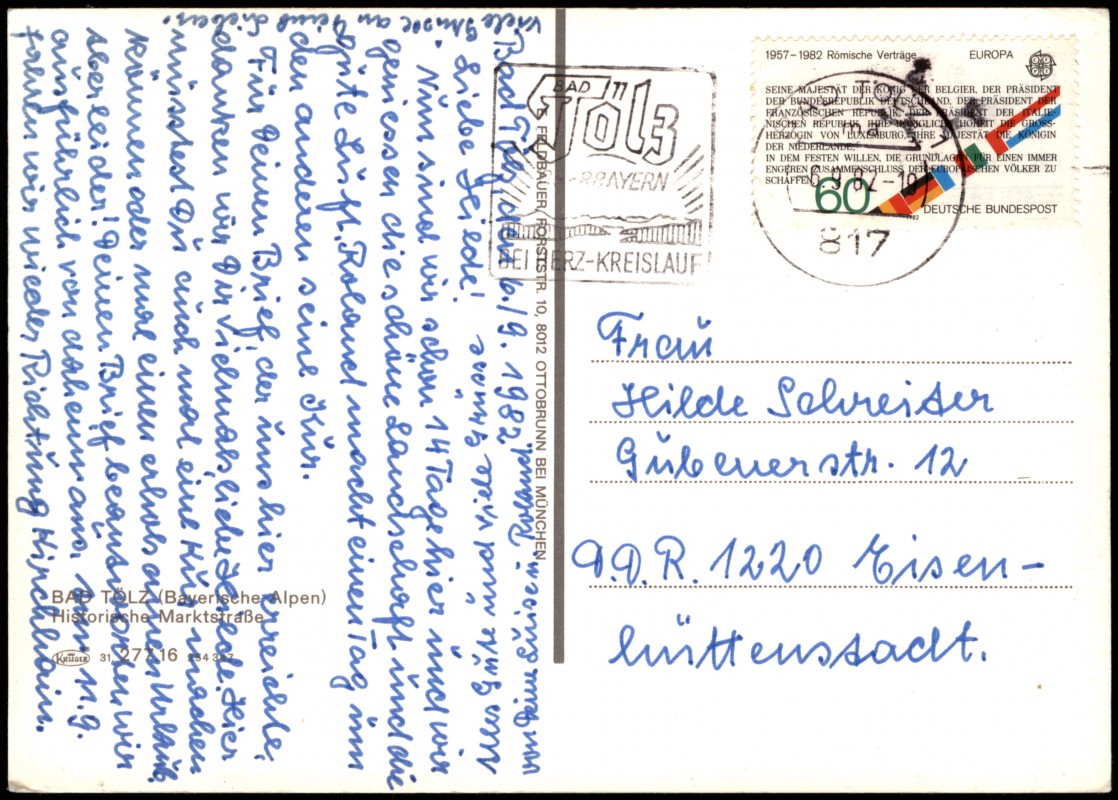 Bad Tölz, den 6./9. 1982.
Liebe Hilde!
Nun sind wir schon 14 Tage hier und wir
geniessen die schöne Landschaft und die
gute Luft. Roland macht einen Tag um
den anderen seine Kur.
Für Deinen Brief, der uns hier erreichte,
danken wir Dir vielmals liebe Hilde. Hier
müsstest Du auch mal eine Kur machen
können oder mal einen erholsamen Urlaub.
aber leider! Deinen Brief beantworten wir
ausführlich von daheim aus. Am 11.9.
fahren wir wieder Richtung Kirchhain.
Alles Gute und viele Grüsse
von Roland
viele Grüsse an Deine Lieben.
BAD TÖLZ (Bayerische Alpen)
Historische Marktstraße
KRÜGER 31 277.16
FELDBAUER, FORSTSTR. 10, 8012 OTTOBRUNN BEI MÜNCHEN
BAD
Tölz
OBERBAYERN
BEI HERZ-KREISLAUF
1957–1982 Römische Verträge EUROPA
SEINE MAJESTÄT DER KÖNIG DER BELGIER, DER PRÄSIDENT
DER BUNDESREPUBLIK DEUTSCHLAND, DER PRÄSIDENT DER
FRANZÖSISCHEN REPUBLIK, DER PRÄSIDENT DER ITALIE-
NISCHEN REPUBLIK, IHRE KÖNIGLICHE HOHEIT DIE GROSS-
HERZOGIN VON LUXEMBURG, IHRE MAJESTÄT DIE KÖNIGIN
DER NIEDERLANDE,
IN DEM FESTEN WILLEN, DIE GRUNDLAGEN FÜR EINEN IMMER
ENGEREN ZUSAMMENSCHLUSS DER EUROPÄISCHEN VÖLKER ZU
SCHAFFEN
60
1982
DEUTSCHE BUNDESPOST
6.9.82-10
817
Frau
Hilde Schreiter
Gubenerstr. 12
D.D.R. 1220 Eisen-
hüttenstadt.